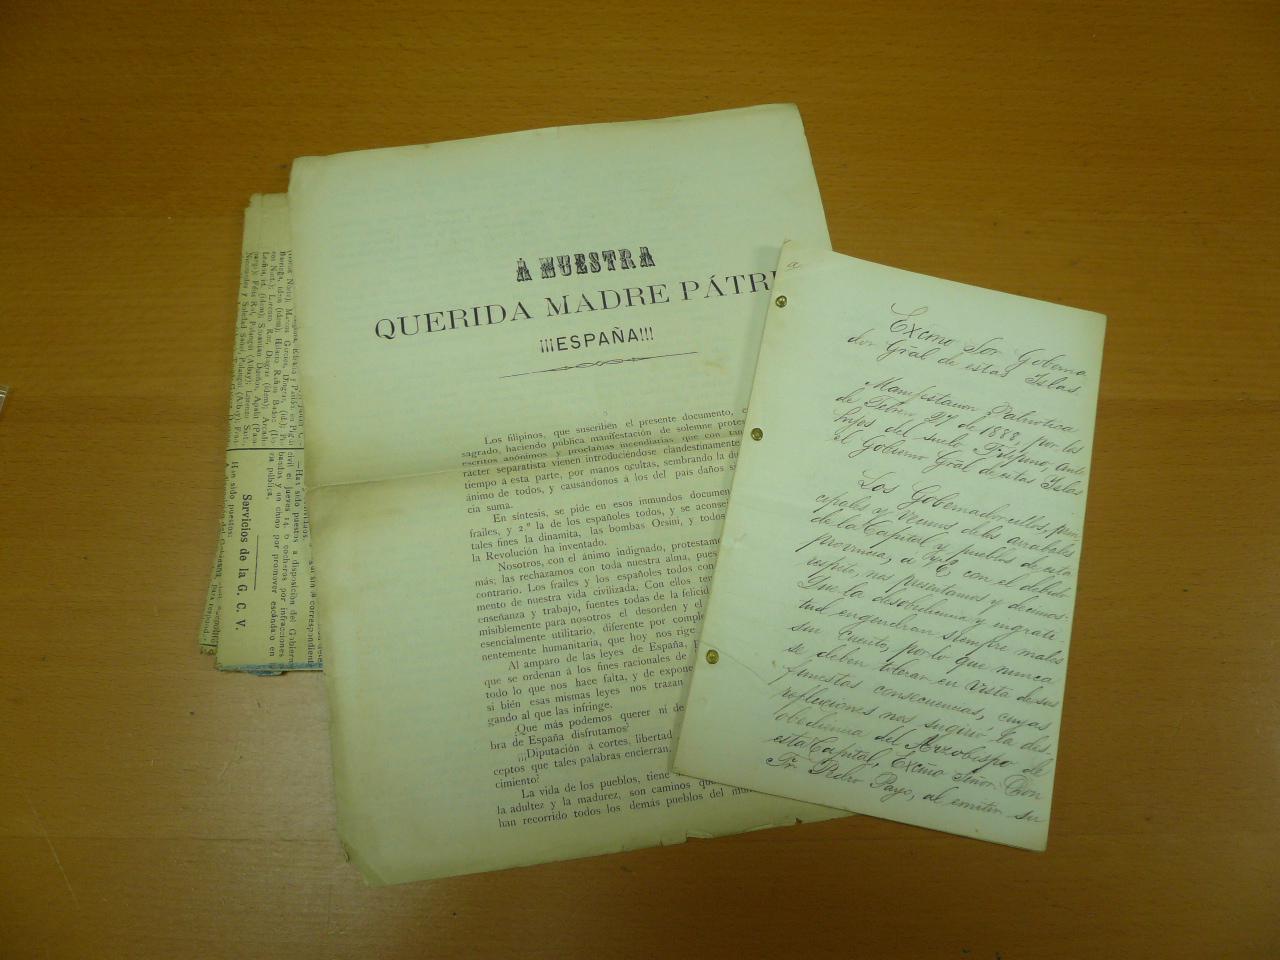 Á NUESTRA
QUERIDA MADRE PÁTRI
¡¡¡ESPAÑA!!!
Los filipinos, que suscriben el presente documento, e
sagrado, haciendo pública manifestación de solemne protes
escritos anónimos y proclamas incendiarias que con tan
rácter separatista vienen introduciéndose clandestinamente
tiempo á esta parte, por manos ocultas, sembrando la du
ánimo de todos, y causándonos á los del país daños si
cia suma.
En síntesis, se pide en esos inmundos documen
frailes, y 2.º la de los españoles todos, y se aconse
tales fines la dinamita, las bombas Orsini, y todos
la Revolución ha inventado.
Nosotros, con el ánimo indignado, protestamo
más; las rechazamos con toda nuestra alma, pues
contrario. Los frailes y los españoles todos con
mento de nuestra vida civilizada. Con ellos ten
enseñanza y trabajo, fuentes todas de la felicid
misiblemente para nosotros el desorden y el
esencialmente utilitario, diferente por comple
nentemente humanitaria, que hoy nos rige
Al amparo de las leyes de España,
que se ordenan á los fines racionales de
todo lo que nos hace falta, y de expone
si bién esas mismas leyes nos trazan
gando al que las infringe.
¿Que más podemos querer ni de
bra de España disfrutamos?
¡¡¡Diputación á cortes, libertad
ceptos que tales palabras encierran,
cimiento?
La vida de los pueblos, tiene
la adultez y la madurez, son caminos qu
han recorrido todos los demás pueblos del mu
Excmo Sor Goberna
dor Gral de estas Islas.
Manifestacion Patriótica
de Febro 27 de 1888, por los
hijos del suelo Filipino, ante
el Gobierno Gral de estas Islas
Los Gobernadorcillos, prin
cipales y vecinos de los arrabales
de la Capital y pueblos de esta
provincia, a V.E. con el debido
respeto, nos presentamos y decimos:
Que la desobediencia y ingrati
tud engendran siempre males
sin cuento, por lo que nunca
se deben tolerar en vista de sus
funestas consecuencias, cuyas
reflecciones nos sugirió la des
obediencia del Arzobispo de
esta Capital, Excmo Señor Don
Fr. Pedro Payo, al emitir su
Servicios de la G. C. V.
Han sido puestos:
—Han sido puestos a disposición del Gobierno
civil el jueves 14, 6 cocheros por infracciones
y un chino por promover escándalo en